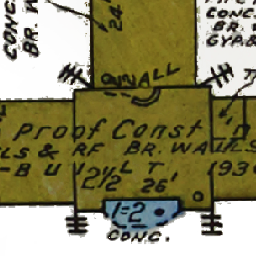 CONC.
BR. W
24'
CONC.
BR. W
GYP. B
WALL
Proof Const'n
LS & RF BR. WALLS
-BUILT 193
2½ 26'
1=2
CONC.